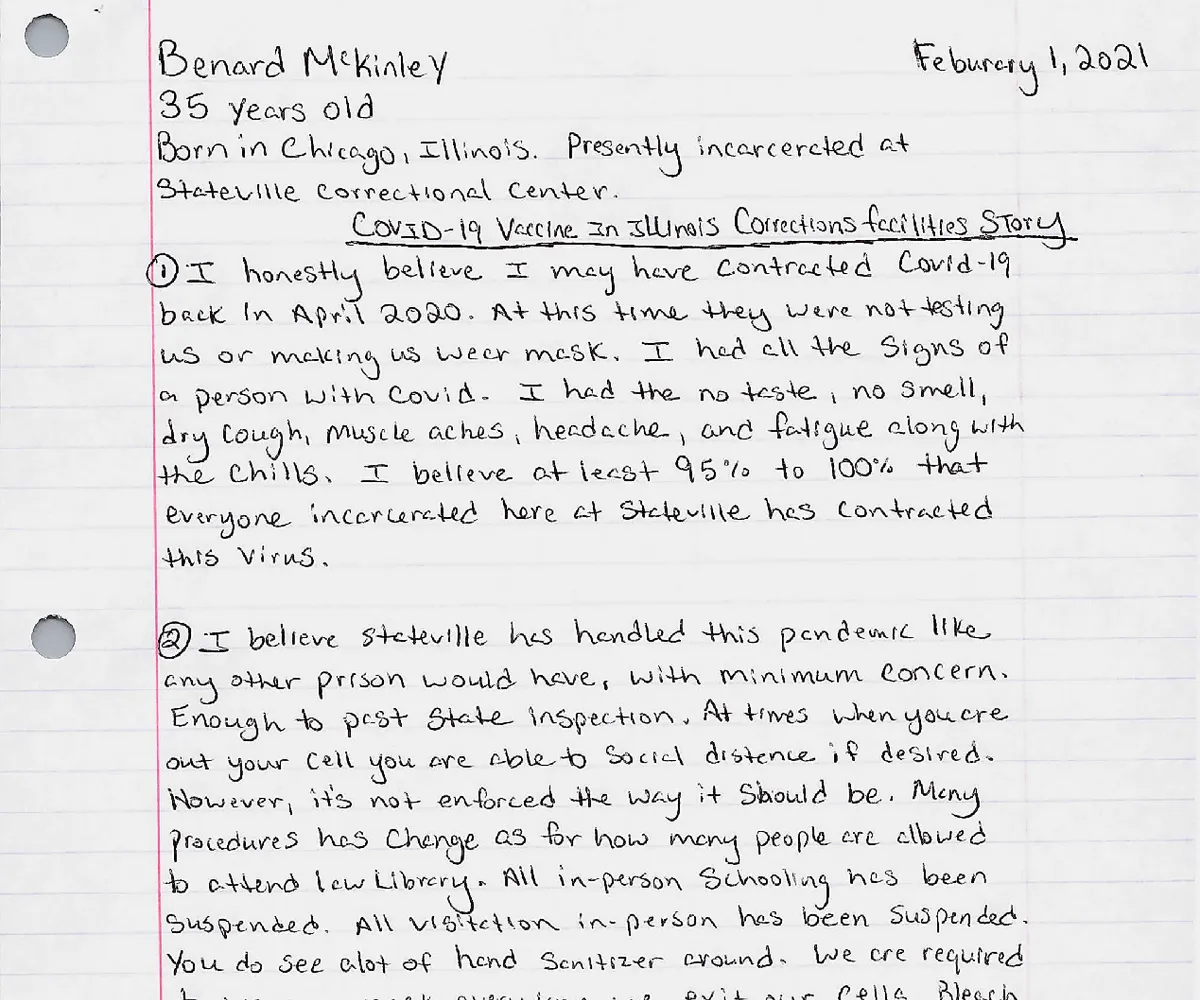 Benard McKinley
Feburary 1, 2021
35 years old
Born in Chicago, Illinois. Presently incarcerated at
Stateville Correctional Center.
COVID-19 Vaccine In Illinois Corrections facilities Story
① I honestly believe I may have contracted Covid-19
back in April 2020. At this time they were not testing
us or making us wear mask. I had all the signs of
a person with Covid. I had the no taste, no smell,
dry cough, muscle aches, headache, and fatigue along with
the chills. I believe at least 95% to 100% that
everyone incarcerated here at Stateville has contracted
this virus.
② I believe Stateville has handled this pandemic like
any other prison would have, with minimum concern.
Enough to past State inspection. At times when you are
out your cell you are able to social distence if desired.
However, it's not enforced the way it should be. Many
procedures has change as for how many people are allowed
to attend law Library. All in-person schooling has been
suspended. All visitation in-person has been suspended.
You do see alot of hand sanitizer around. We are required
exit our cells Bleach